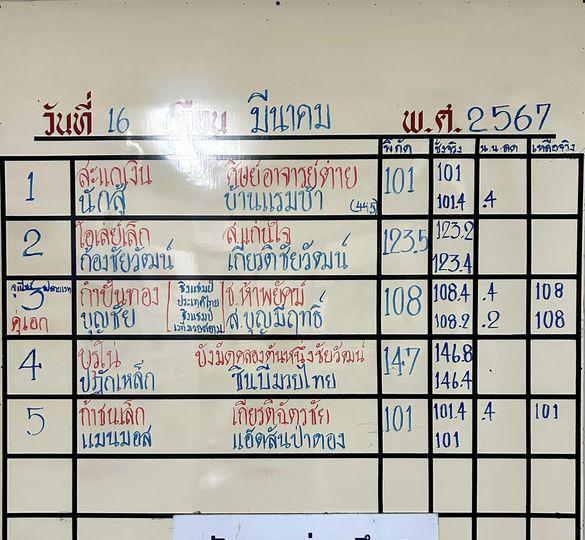 วันที่ 16 เดือน มีนาคม พ.ศ. 2567
พิกัด ชั่งจริง น.น.ลด เหลือจริง
1 สะแกเงิน ศิษย์อาจารย์ต่าย 101 101
นักสู้ บ้านแรมบ้า (445) 101.4 .4
2 โอเล่ย์เล็ก ส.แก่นใจ 123.5 123.2
ก้องชัยวัฒน์ เกียรติชัยวัฒน์ 123.4
3 กำปั่นทอง ชิงแชมป์ ประเทศไทย ช.ห้าพยัคฆ์ 108 108.4 .4 108
คู่เอก บุญชัย ชิงแชมป์ ส.บุญมีฤทธิ์ 108.2 .2 108
4 บุรีโน่ บังมัดคลองตันหนึ่งชัยวัฒน์ 147 146.8
ปฏักเหล็ก ชินบีมวยไทย 146.4
5 ก้าชนเล็ก เกียรติฉัตรชัย 101 101.4 .4 101
แมนมอส แอ๊ดสันป่าตอง 101